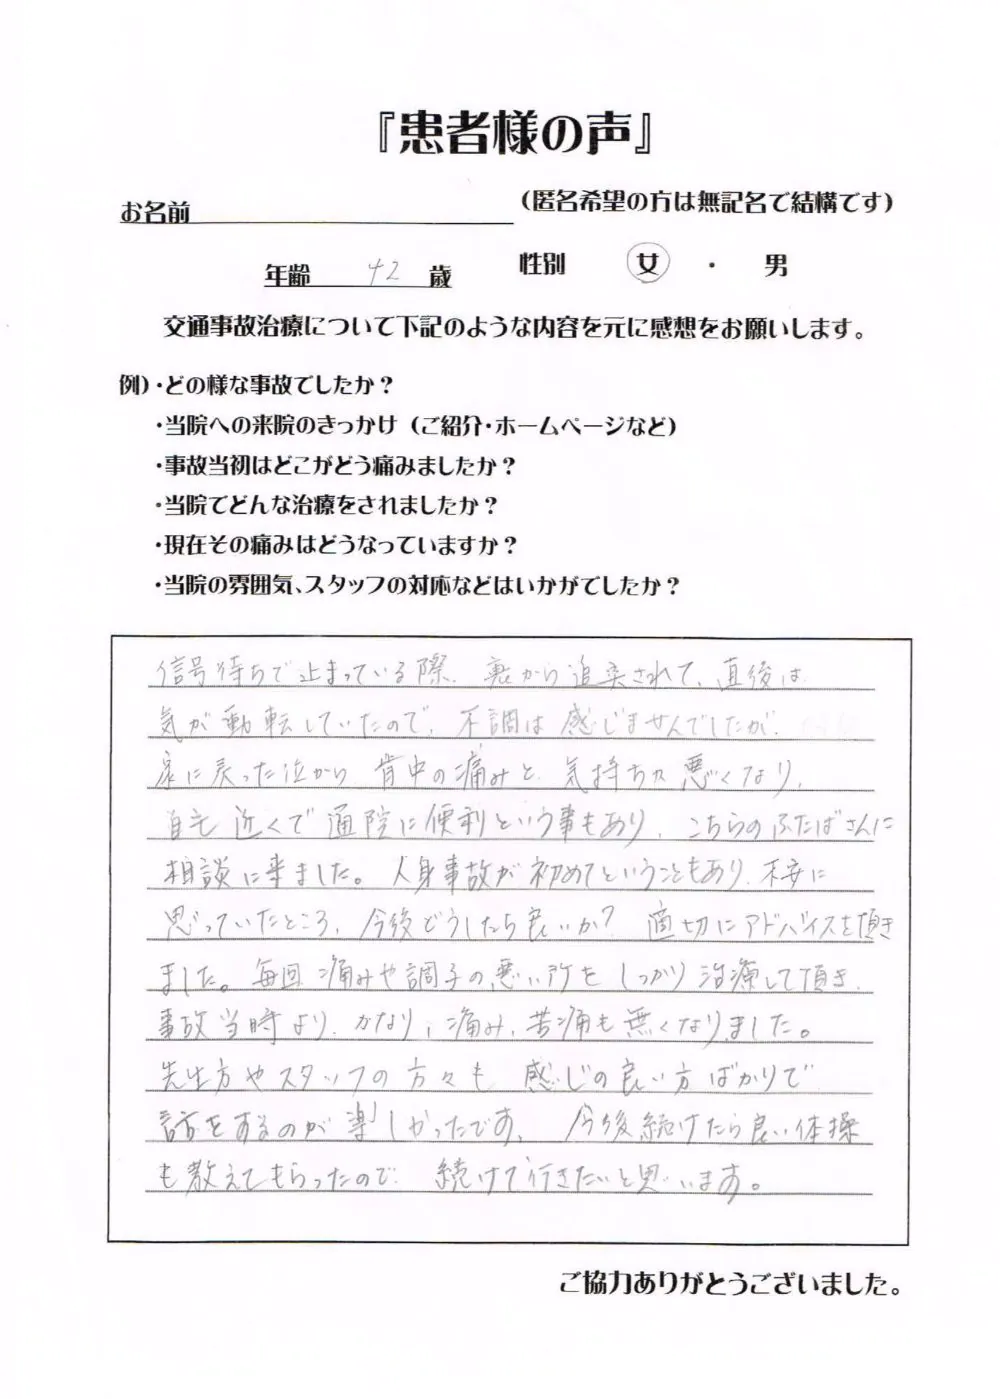 『患者様の声』
お名前 (匿名希望の方は無記名で結構です)
年齢 42 歳 性別 女 ・ 男
交通事故治療について下記のような内容を元に感想をお願いします。
例)・どの様な事故でしたか?
・当院への来院のきっかけ (ご紹介・ホームページなど)
・事故当初はどこがどう痛みましたか?
・当院でどんな治療をされましたか?
・現在その痛みはどうなっていますか?
・当院の雰囲気、スタッフの対応などはいかがでしたか?
信号待ちで止まっている際、裏から追突されて、直後は
気が動転していたので、不調は感じませんでしたが、
家に戻った位から、背中の痛みと、気持ちが悪くなり、
自宅近くで通院に便利という事もあり、こちらのふたばさんに
相談に来ました。人身事故が初めてということもあり、不安に
思っていたところ、今後どうしたら良いか?適切にアドバイスを頂き
ました。毎回痛みや調子の悪い所をしっかり治療して頂き、
事故当時より、かなり、痛み、苦痛も無くなりました。
先生方やスタッフの方々も感じの良い方ばかりで
話をするのが楽しかったです。今後続けたら良い体操
も教えてもらったので、続けて行きたいと思います。
ご協力ありがとうございました。